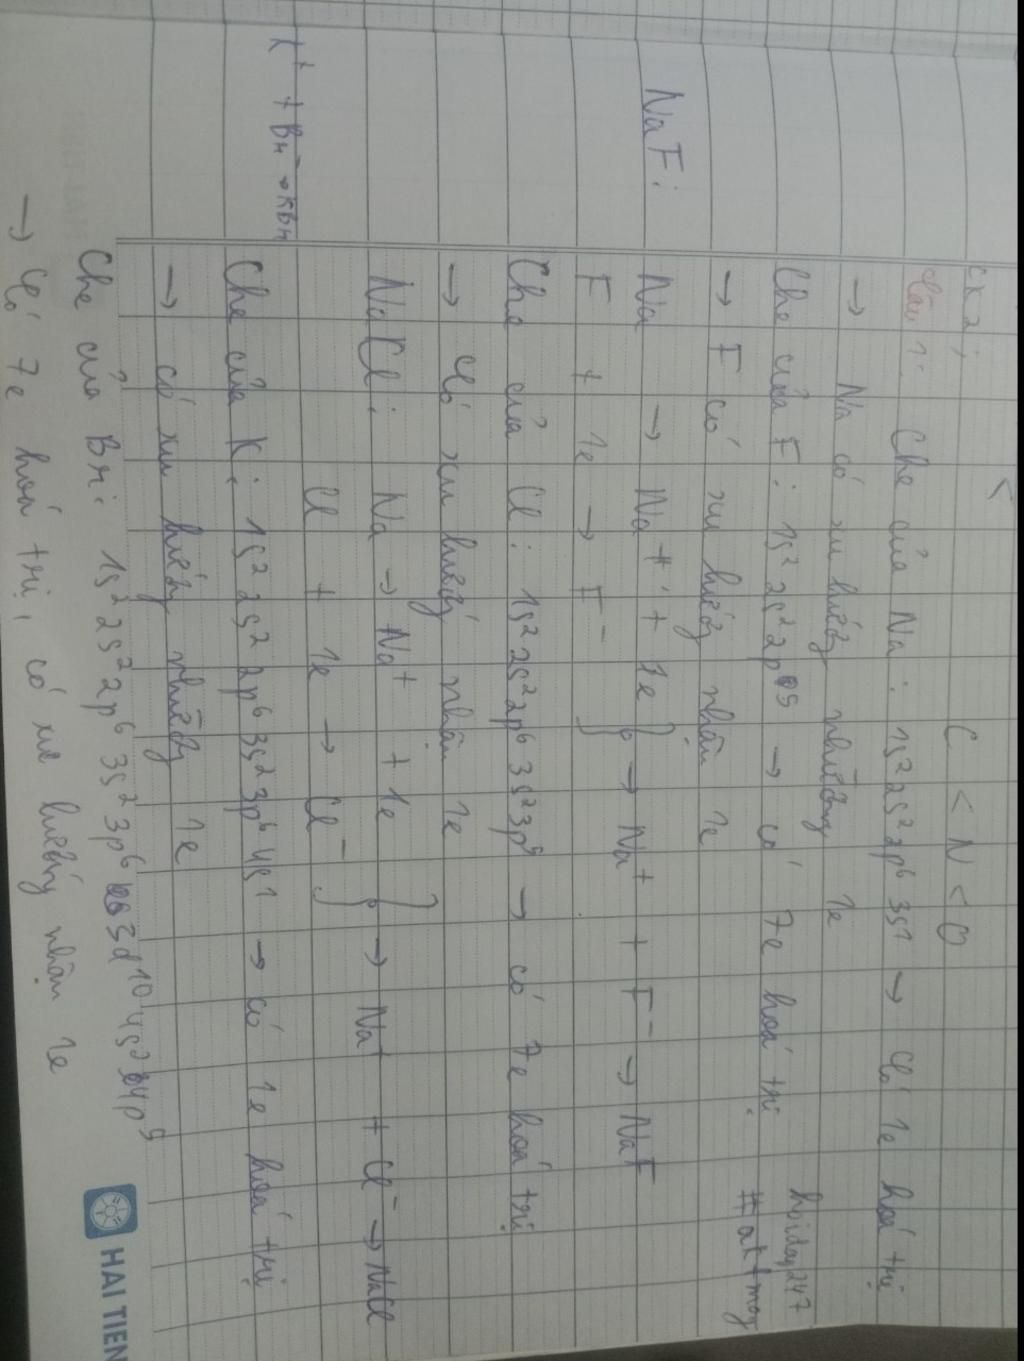 C < N < O
<
Ex2:
Câu 1: Che của Na: 1s² 2s² 2p⁶ 3s¹ → Có 1e hoá trị
→ Na có xu hướng nhường 1e
Che của F: 1s² 2s² 2p⁵ → có 7e hoá trị
hoiday247
→ F có xu hướng nhận 1e
#attmoy
NaF: Na → Na⁺ + 1e } → Na⁺ + F⁻ → NaF
F + 1e → F⁻
Che của Cl: 1s² 2s² 2p⁶ 3s² 3p⁵ → có 7e hoá trị
→ Có xu hướng nhận 1e
NaCl: Na → Na⁺ + 1e } → Na⁺ + Cl⁻ → NaCl
Cl + 1e → Cl⁻
K⁺ + Br⁻ → KBr
Che của K: 1s² 2s² 2p⁶ 3s² 3p⁶ 4s¹ → có 1e hoá trị
→ có xu hướng nhường 1e
Che của Br: 1s² 2s² 2p⁶ 3s² 3p⁶ 3d¹⁰ 4s² 4p⁵
→ Có 7e hoá trị, có xu hướng nhận 1e
HAI TIEN